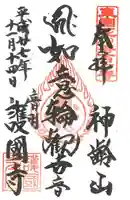 奉拝
神齢山
如意輪観世音
平成廿七年
十一月十四日
音羽
護國寺